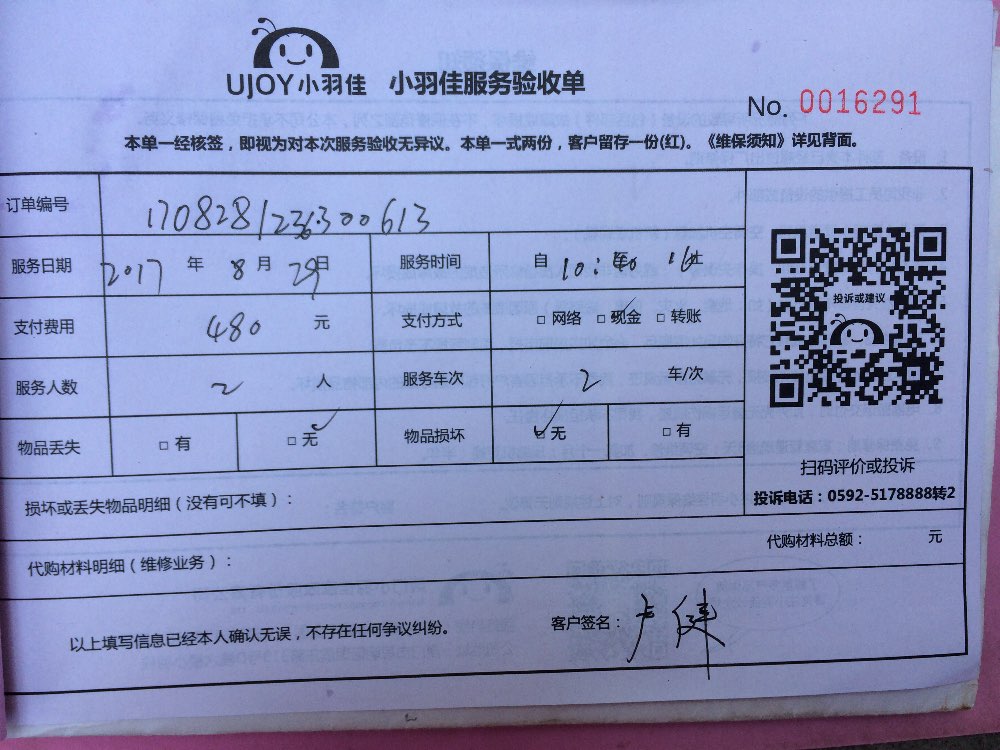 UJOY小羽佳 小羽佳服务验收单
No. 0016291
本单一经核签，即视为对本次服务验收无异议。本单一式两份，客户留存一份(红)。《维保须知》详见背面。
订单编号 170828123300613
服务日期 2017 年 8 月 29 日 服务时间 自 10:
投诉或建议
支付费用 480 元 支付方式 □ 网络 □ 现金 □ 转账
服务人数 2 人 服务车次 2 车/次
物品丢失 □ 有 □ 无 物品损坏 □ 无 □ 有
扫码评价或投诉
投诉电话：0592-5178888转2
损坏或丢失物品明细（没有可不填）：
代购材料明细（维修业务）： 代购材料总额： 元
以上填写信息已经本人确认无误，不存在任何争议纠纷。 客户签名：卢健